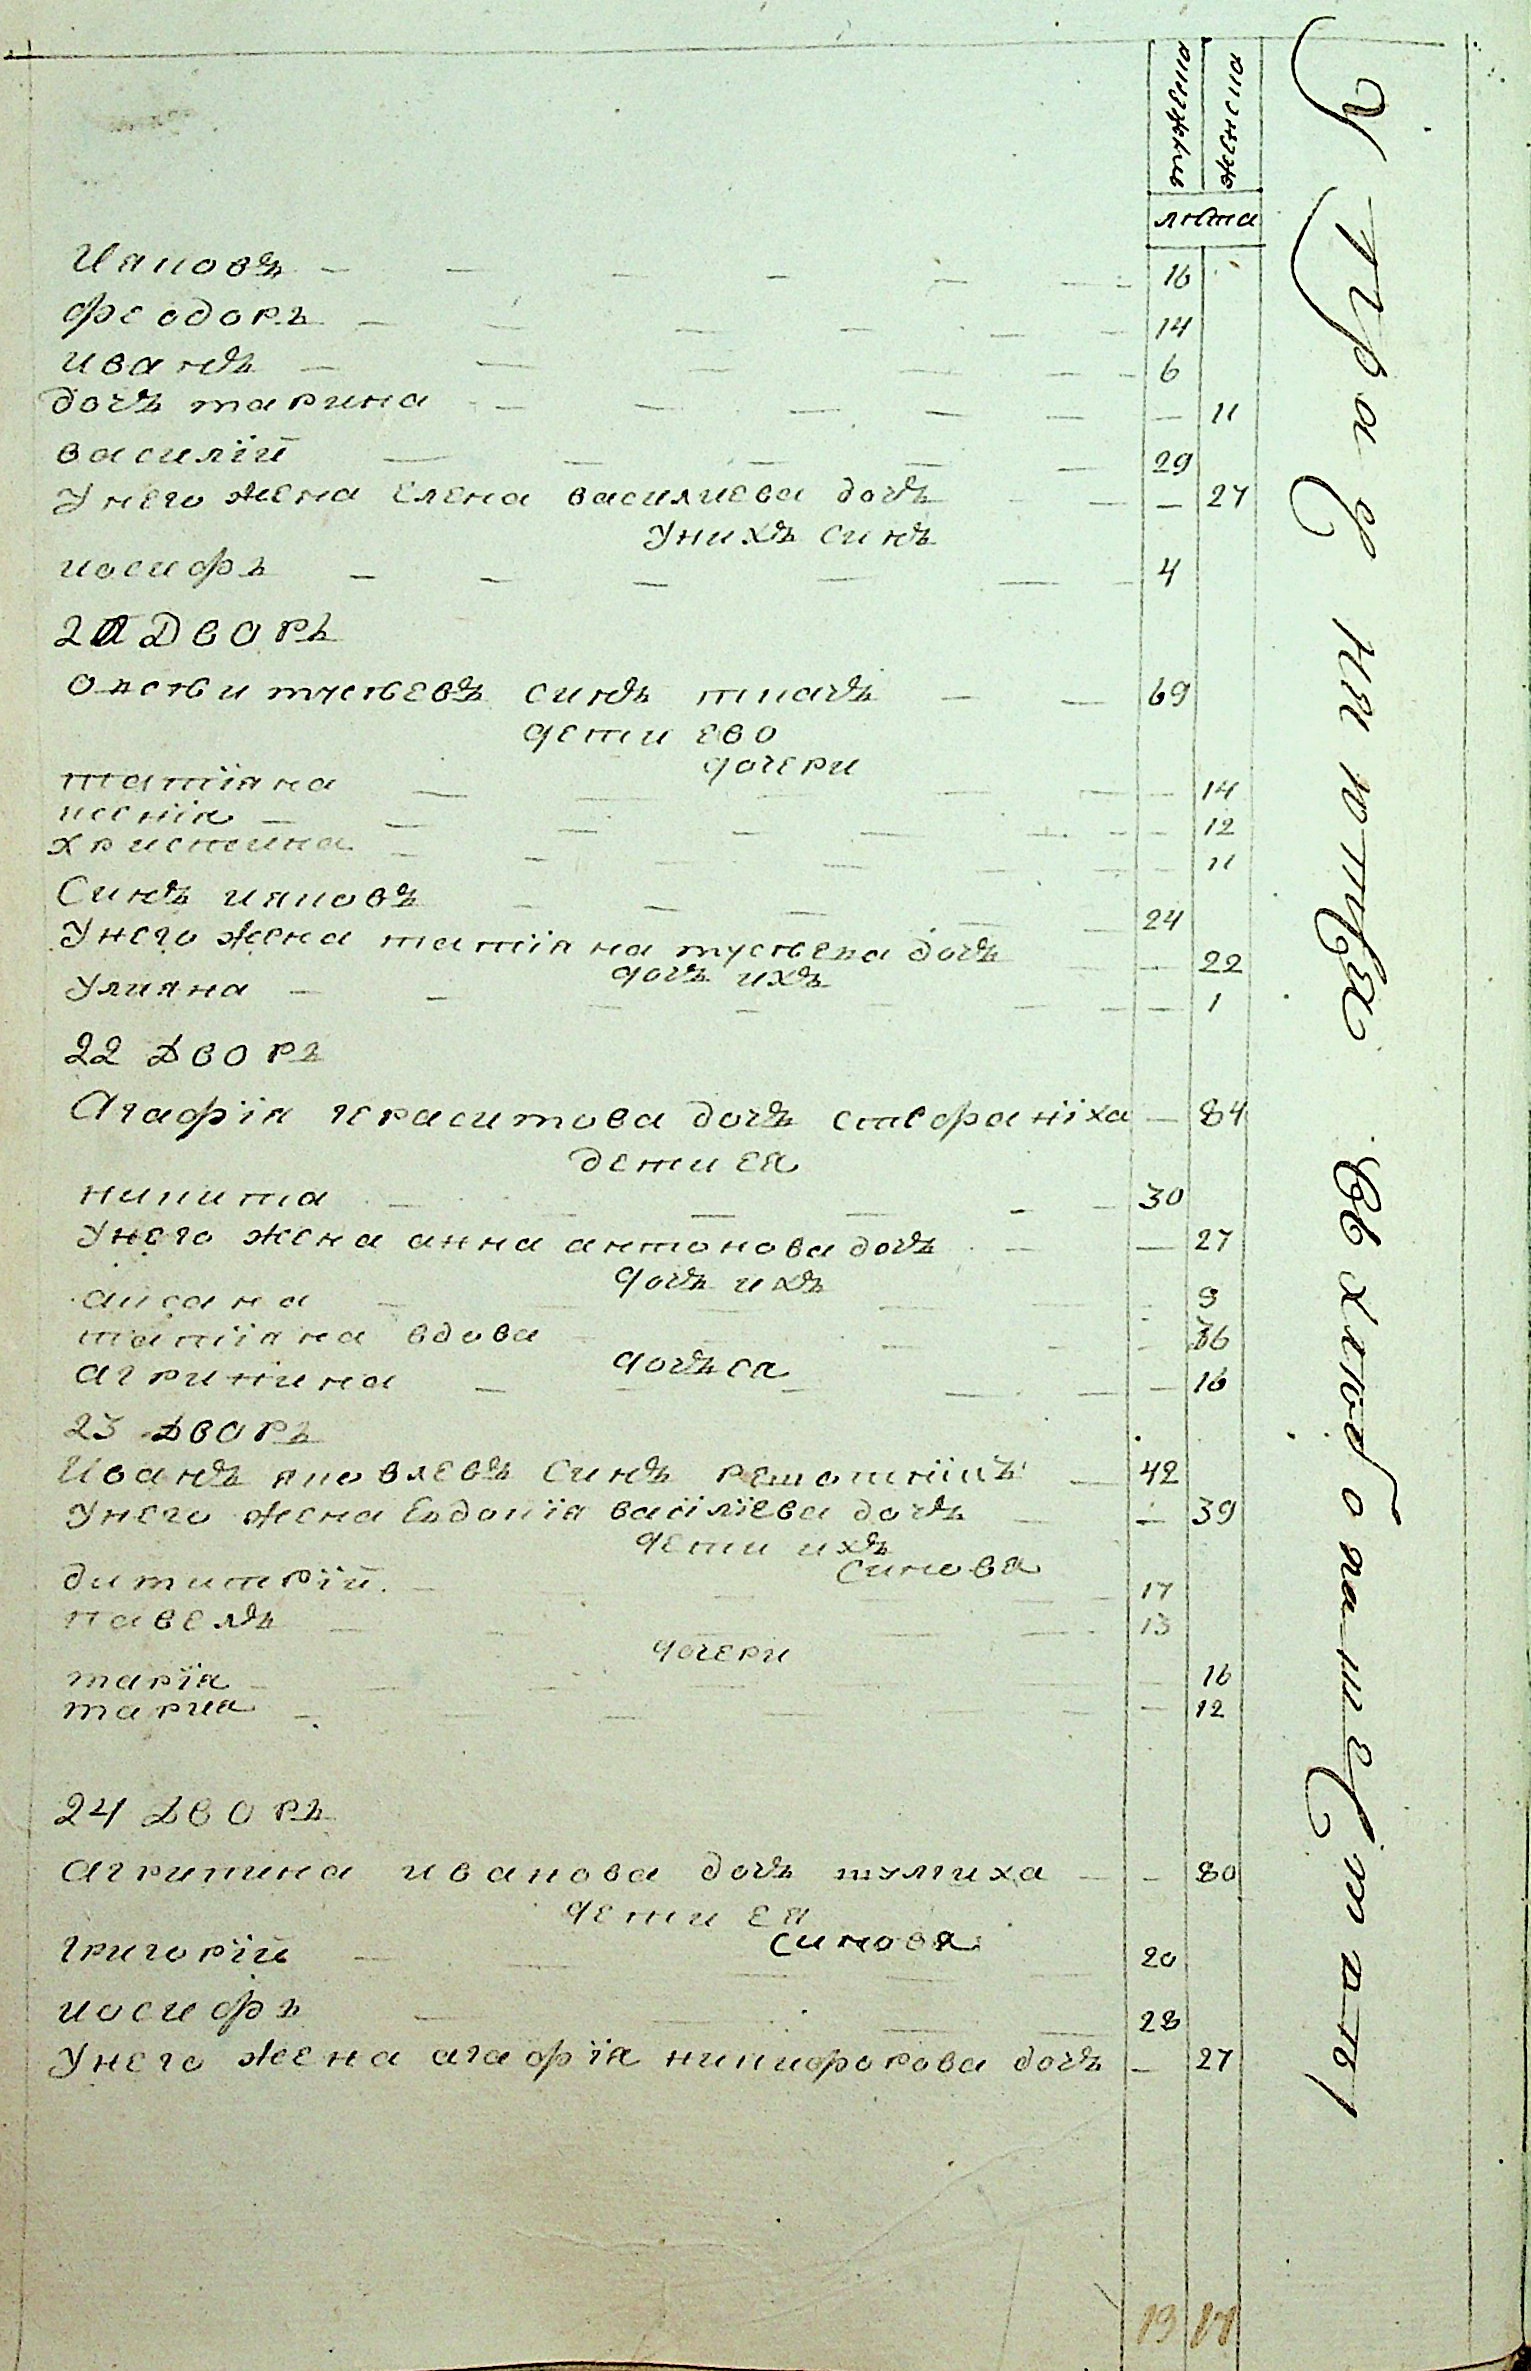 мужеска
женска
лѣта
Ияковъ 16
Феодоръ 14
иванъ 6
дочъ марина — 11
василїй 29
У него жена Елена василиева дочъ — 27
У нихъ синъ
иосифъ 4
21 Дворъ
синъ ткачъ 69
дети ево
дочери
татїяна — 14
ксенїя — 12
христина — 11
Синъ ияковъ 24
У него жена татїяна дочъ — 22
дочъ ихъ
Улияна — 1
22 Дворъ
Агафїя герасимова дочъ стефанїха — 84
дети ея
никита 30
У него жена анна антонова дочъ — 27
дочъ ихъ
9
татїяна вдова — 36
дочъ ея
агрипина — 16
23 Дворъ
Иванъ яковлевъ Синъ 42
У него жена Евдокїя васїлїева дочъ — 39
дети ихъ
Синовя
димитрїй 17
павелъ 13
дочери
марїя — 16
мариа — 12
24 Дворъ
агрипина иванова дочъ — 80
дети ея
Синовя
григорїй 20
иосифъ 28
У него жена агафїя никифорова дочъ — 27
19 17